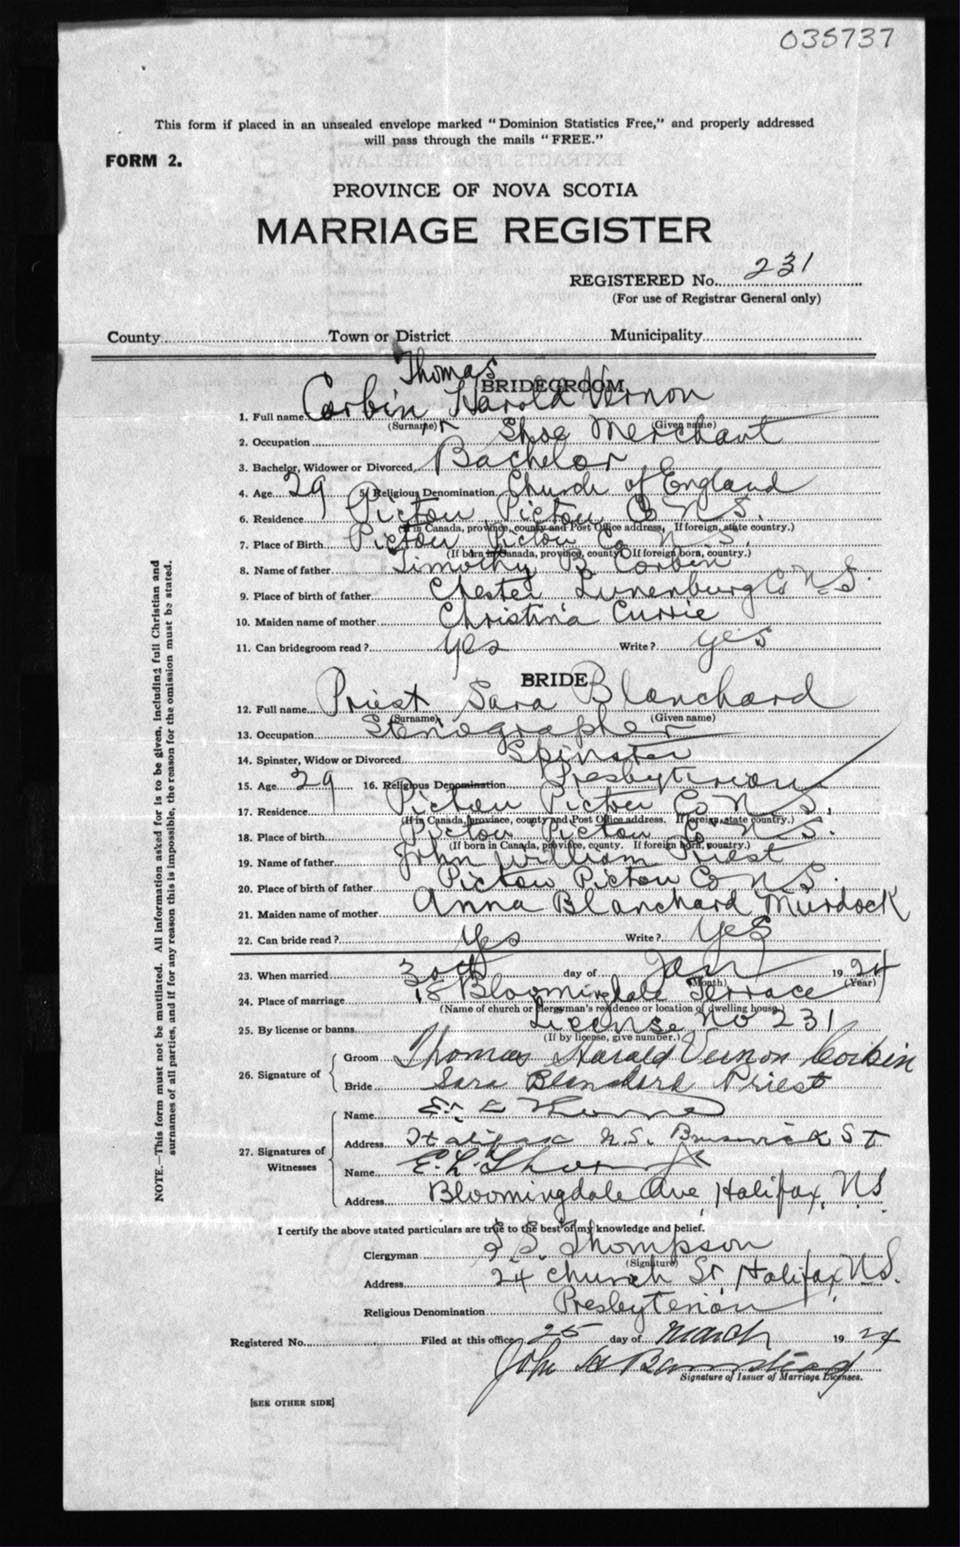 035737
This form if placed in an unsealed envelope marked "Dominion Statistics Free," and properly addressed
will pass through the mails "FREE."
FORM 2.
PROVINCE OF NOVA SCOTIA
MARRIAGE REGISTER
REGISTERED No. 231
(For use of Registrar General only)
County Town or District Municipality
Thomas
BRIDEGROOM
1. Full name Corbin Harold Vernon
(Surname) (Given name)
2. Occupation Shoe Merchant
3. Bachelor, Widower or Divorced Bachelor
4. Age 29 5. Religious Denomination Church of England
6. Residence Pictou Pictou Co N.S.
(If in Canada, province, county and Post Office address. If foreign, state country.)
7. Place of Birth Pictou Pictou Co N.S.
(If born in Canada, province, county. If foreign born, country.)
8. Name of father Timothy B Corbin
9. Place of birth of father Chester Lunenburg Co N.S.
10. Maiden name of mother Christina Currie
11. Can bridegroom read? yes Write? yes
BRIDE
12. Full name Priest Sara Blanchard
(Surname) (Given name)
13. Occupation Stenographer
14. Spinster, Widow or Divorced Spinster
15. Age 29 16. Religious Denomination Presbyterian
17. Residence Pictou Pictou Co N S.
(If in Canada, province, county and Post Office address. If foreign, state country.)
18. Place of birth Pictou Pictou Co N S.
(If born in Canada, province, county. If foreign born, country.)
19. Name of father John William Priest
20. Place of birth of father Pictou Pictou Co N S.
21. Maiden name of mother Anna Blanchard Murdock
22. Can bride read? Yes Write? Yes
23. When married 30th day of Jan 1924
(Month) (Year)
24. Place of marriage 18 Bloomingdale Terrace
(Name of church or clergyman's residence or location of dwelling house)
25. By license or banns License No 231
(If by license, give number.)
26. Signature of Groom Thomas Harald Vernon Corbin
Bride Sara Blanchard Priest
27. Signatures of Witnesses Name E.
Address Halifax N.S. Brunswick St
Name E. L.
Address Bloomingdale Ave, Halifax, N.S
I certify the above stated particulars are true to the best of my knowledge and belief.
Clergyman Thompson
(Signature)
Address 24 Church St, Halifax, N.S.
Religious Denomination Presbyterian
Registered No. Filed at this office 25 day of March 1924
John
Signature of Issuer of Marriage Licenses.
[SEE OTHER SIDE]
NOTE.—This form must not be mutilated. All information asked for is to be given, including full Christian and
surnames of all parties, and if for any reason this is impossible, the reason for the omission must be stated.